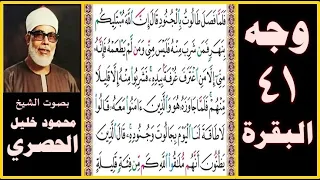 وجه
٤١
البقرة
بصوت الشيخ
محمود خليل
الحصري
فلما فصل طالوت بالجنود قال إن الله مبتليكم
بنهر فمن شرب منه فليس مني ومن لم يطعمه فإنه
مني إلا من اغترف غرفة بيده فشربوا منه إلا قليلا
منهم فلما جاوزه هو والذين ءامنوا معه قالوا
لا طاقة لنا اليوم بجالوت وجنوده قال الذين
يظنون أنهم ملقوا الله كم من فئة قليلة